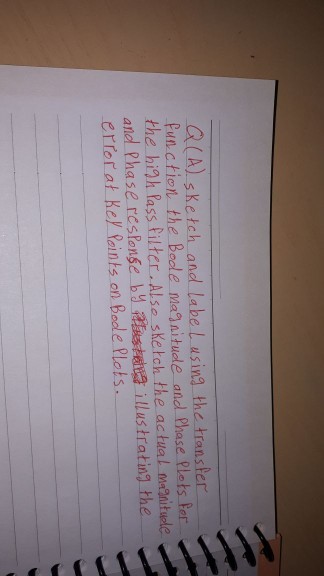 Q(A) sketch and label using the transfer
function the Bode magnitude and Phase Plots for
the high Pass filter. Also sketch the actual magnitude
and Phase response by illustrating the
error at Key Points on Bode Plots.